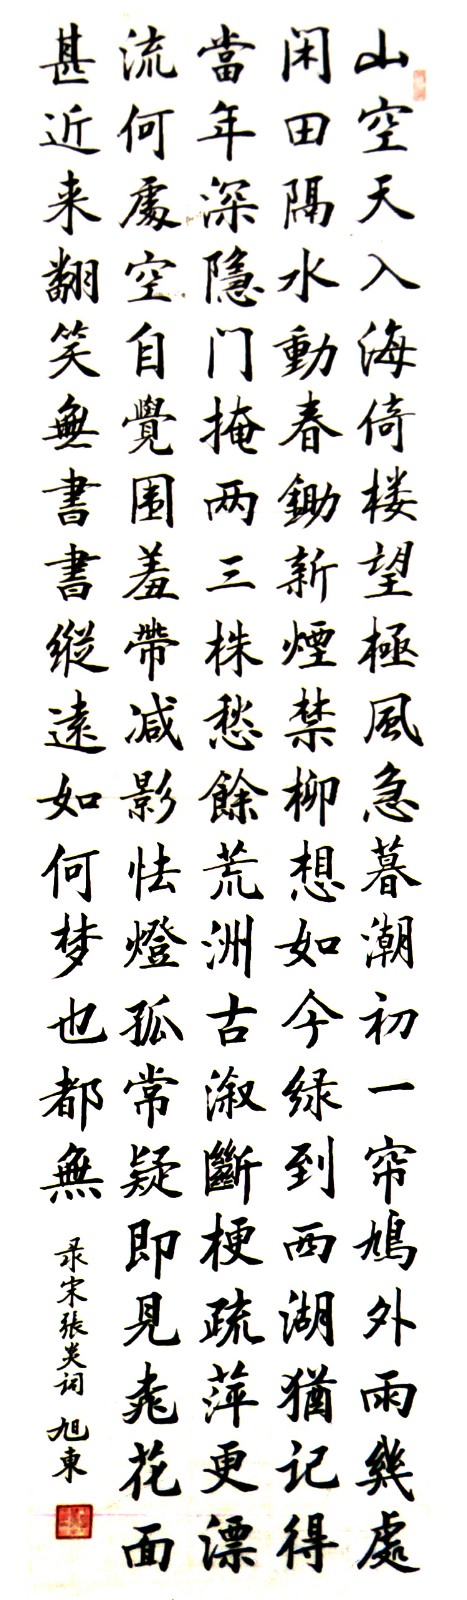 山空天入海倚楼望極風急暮潮初一帘鳩外雨幾處
闲田隔水動春鋤新煙禁柳想如今绿到西湖猶記得
當年深隱门掩两三株愁餘荒洲古溆斷梗疏萍更漂
流何處空自覺围羞帶减影怯燈孤常疑即見桃花面
甚近来翻笑無書書縱遠如何梦也都無
录宋張炎词 旭東